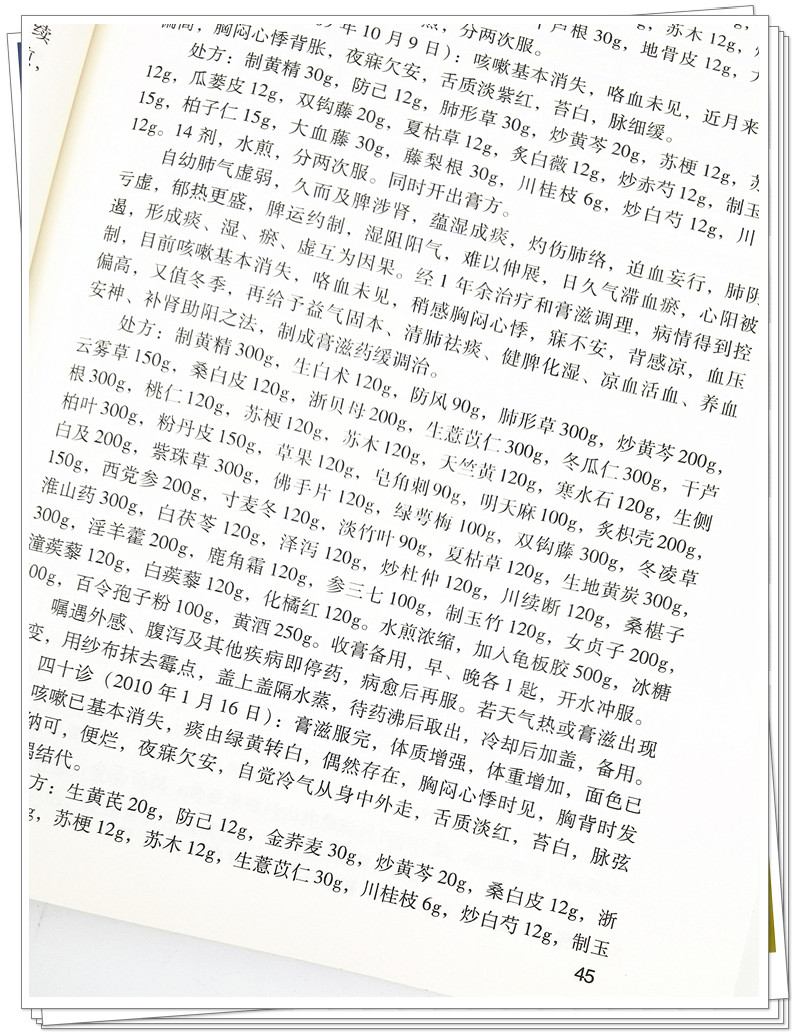 续
，苏木 12g，
芦根 30g，地骨皮 12g，
，分两次服。
年 10 月 9 日）：咳嗽基本消失，咯血未见，近月来
偏高，胸闷心悸背胀，夜寐欠安，舌质淡紫红，苔白，脉细缓。
处方：制黄精 30g，防己 12g，肺形草 30g，炒黄芩 20g，苏梗 12g，
12g，瓜蒌皮 12g，双钩藤 20g，夏枯草 12g，炙白薇 12g，炒赤芍 12g，制玉
15g，柏子仁 15g，大血藤 30g，藤梨根 30g，川桂枝 6g，炒白芍 12g，川
12g。14 剂，水煎，分两次服。同时开出膏方。
自幼肺气虚弱，久而及脾涉肾，蕴湿成痰，灼伤肺络，迫血妄行，肺阴
亏虚，郁热更盛，脾运约制，湿阻阳气，难以伸展，日久气滞血瘀，心阳被
遏，形成痰、湿、瘀、虚互为因果。经 1 年余治疗和膏滋调理，病情得到控
制，目前咳嗽基本消失，咯血未见，稍感胸闷心悸，寐不安，背感凉，血压
偏高，又值冬季，再给予益气固本、清肺祛痰、健脾化湿、凉血活血、养血
安神、补肾助阳之法，制成膏滋药缓调治。
处方：制黄精 300g，生白术 120g，防风 90g，肺形草 300g，炒黄芩 200g，
云雾草 150g，桑白皮 120g，浙贝母 200g，生薏苡仁 300g，冬瓜仁 300g，干芦
根 300g，桃仁 120g，苏梗 120g，苏木 120g，天竺黄 120g，寒水石 120g，生侧
柏叶 300g，粉丹皮 150g，草果 120g，皂角刺 90g，明天麻 100g，炙枳壳 200g，
白及 200g，紫珠草 300g，佛手片 120g，绿萼梅 100g，双钩藤 300g，冬凌草
150g，西党参 200g，寸麦冬 120g，淡竹叶 90g，夏枯草 120g，生地黄炭 300g，
淮山药 300g，白茯苓 120g，泽泻 120g，炒杜仲 120g，川续断 120g，桑椹子
300g，淫羊藿 200g，鹿角霜 120g，参三七 100g，制玉竹 120g，女贞子 200g，
潼蒺藜 120g，白蒺藜 120g，化橘红 120g。水煎浓缩，加入龟板胶 500g，冰糖
00g，百令孢子粉 100g，黄酒 250g。收膏备用，早、晚各 1 匙，开水冲服。
嘱遇外感、腹泻及其他疾病即停药，病愈后再服。若天气热或膏滋出现
变，用纱布抹去霉点，盖上盖隔水蒸，待药沸后取出，冷却后加盖，备用。
四十诊（2010 年 1 月 16 日）：膏滋服完，体质增强，体重增加，面色已
咳嗽已基本消失，痰由绿黄转白，偶然存在，胸闷心悸时见，胸背时发
纳可，便烂，夜寐欠安，自觉冷气从身中外走，舌质淡红，苔白，脉弦
结代。
方：生黄芪 20g，防己 12g，金荞麦 30g，炒黄芩 20g，桑白皮 12g，浙
g，苏梗 12g，苏木 12g，生薏苡仁 30g，川桂枝 6g，炒白芍 12g，制玉
45